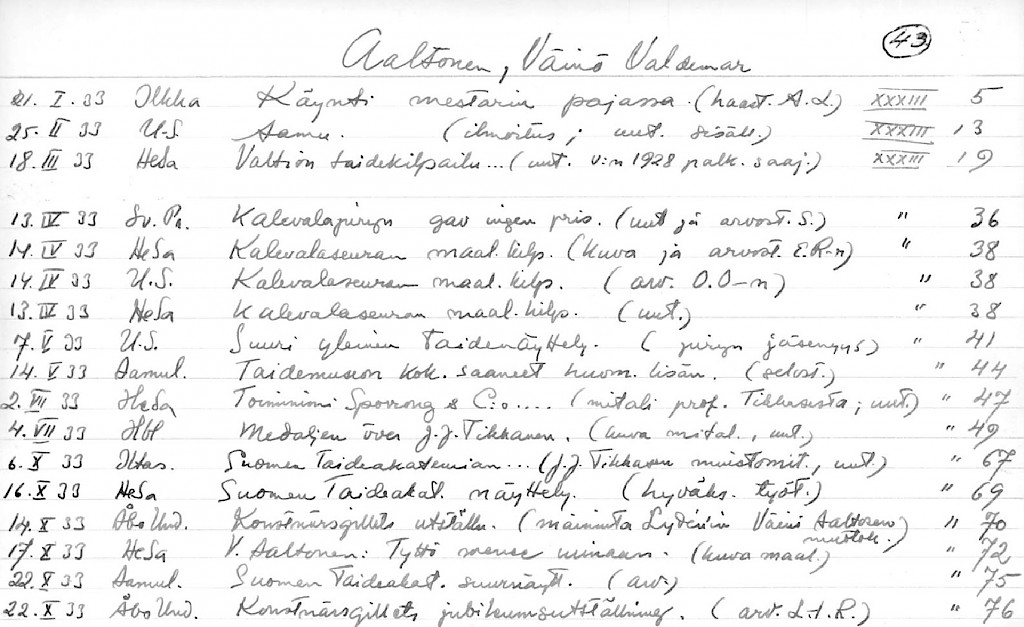 43
Aaltonen, Väinö Valdemar
21. I. 33 Ilkka Käynti mestarin pajassa. (haast. A.L.) XXXIII 5
25. II 33 U.S. Aamu. (ilmoitus; uut. sisält.) XXXIII 13
18. III 33 HeSa Valtion taidekilpailu... (uut. v:n 1928 palk. saaj.) XXXIII 19
13. IV 33 Sv. Pr. Kalevalajuryn gav ingen pris. (uut ja arvost. S.) " 36
14. IV 33 HeSa Kalevalaseuran maal. kilp. (kuva ja arvost. E.R-n) " 38
14. IV 33 U.S. Kalevalaseuran maal. kilp. (arv. O.O-n) " 38
13. IV 33 HeSa Kalevalaseuran maal. kilp. (uut.) " 38
7. V 33 U.S. Suuri yleinen taidenäyttely. (juryn jäsenyys) " 41
14. V 33 Aamul. Taidemuseon kok. saaneet huom. lisän. (selost.) " 44
2. VII 33 HeSa Toiminimi Sporrong & C:o.... (mitali prof. Tikkasesta; uut.) " 47
4. VII 33 Hbl Medaljen över J.J. Tikkanen. (kuva mital., uut.) " 49
6. X 33 Iltas. Suomen Taideakatemian... (J.J. Tikkasen muistomit., uut.) " 67
16. X 33 HeSa Suomen Taideakat. näyttely. (hyväks. työt.) " 69
14. X 33 Åbo Und. Konstnärsgillets utställn. (maininta Lydénin Väinö Aaltosen muotok.) " 70
17. X 33 HeSa V. Aaltonen: Tyttö menee uimaan. (kuva maal.) " 72
22. X 33 Aamul. Suomen Taideakat. suurnäytt. (arv.) " 75
22. X 33 Åbo Und. Konstnärsgillets jubileumsutställning. (arv. L.t.R.) " 76